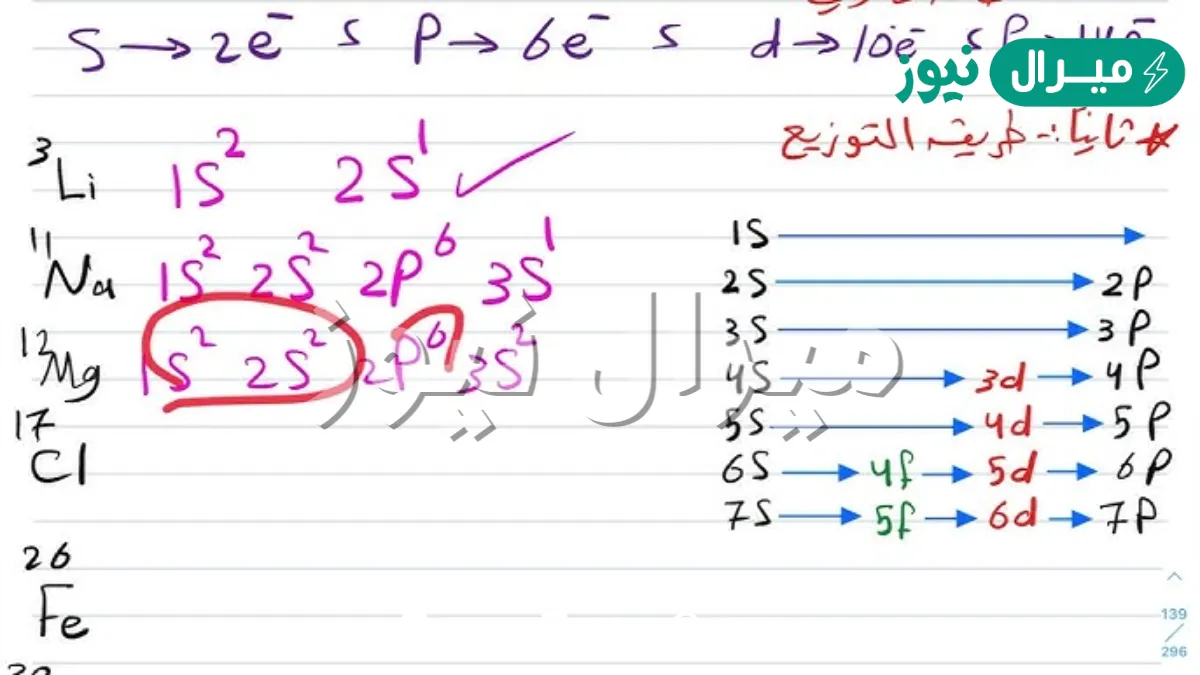 S → 2e⁻ s P → 6e⁻ s d → 10e⁻ s
ميرال نيوز
* ثانياً :- طريقه التوزيع
3 Li 1S² 2S¹ ✓
11 Na 1S² 2S² 2P⁶ 3S¹
12 Mg 1S² 2S² 2P⁶ 3S²
17 Cl
26 Fe
1S →
2S → 2P
3S → 3P
4S → 3d → 4P
5S → 4d → 5P
6S → 4f → 5d → 6P
7S → 5f → 6d → 7P
ميرال نيوز
139
296